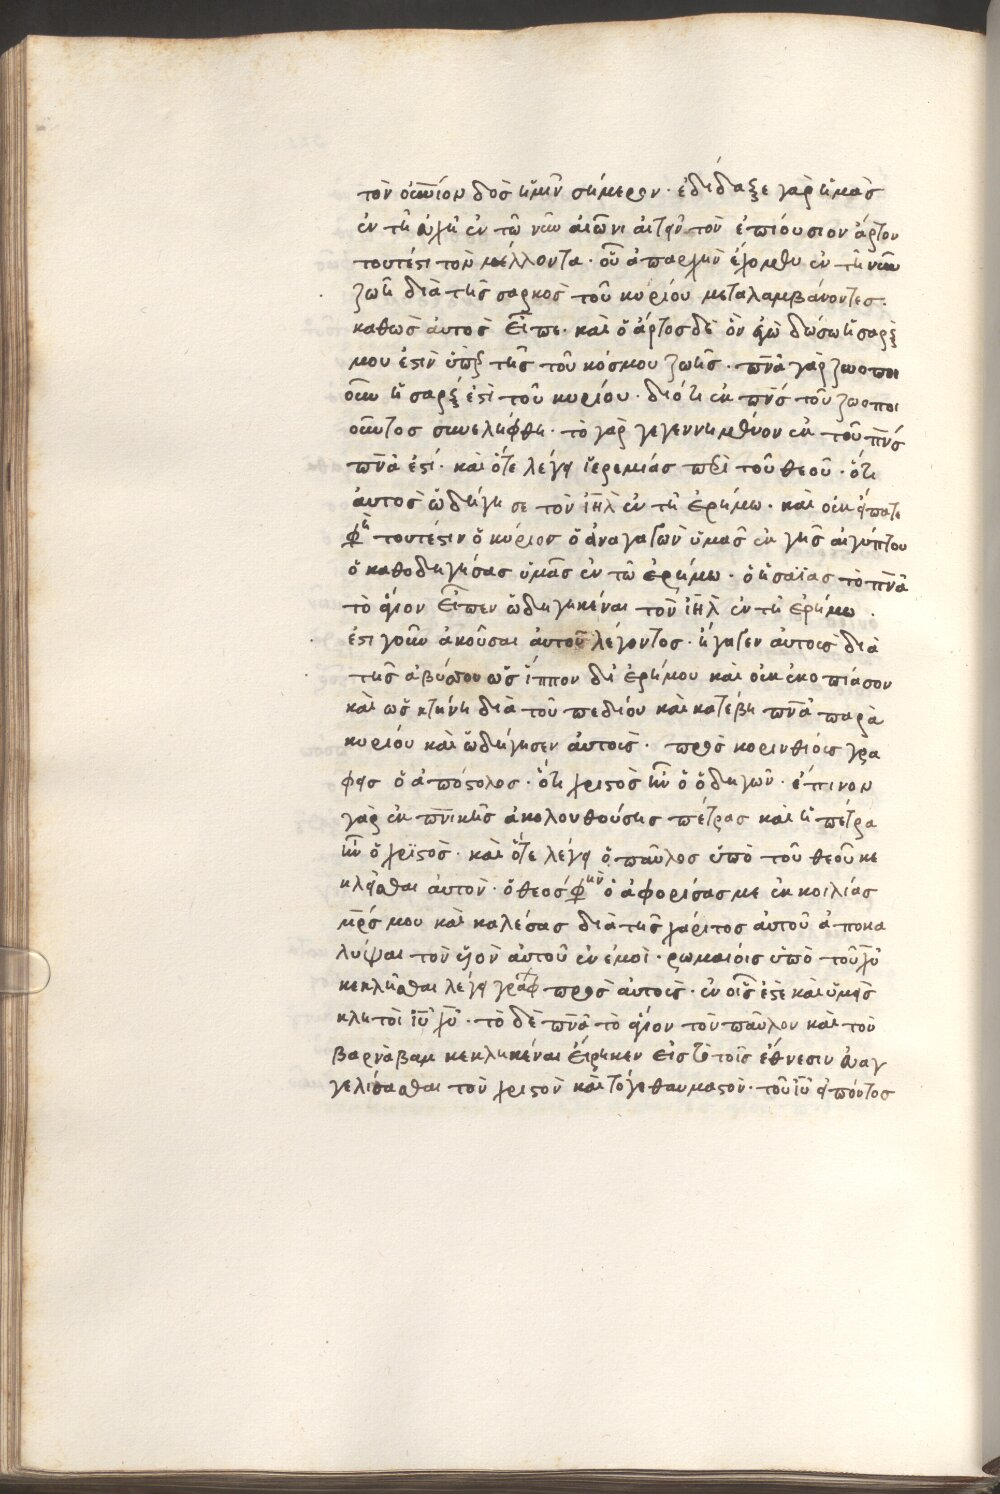 τὸν ἐπιούσιον δὸς ἡμῖν σήμερον · ἐδίδαξε γὰρ ἡμᾶς
ἐν τῆ εὐχῆ ἐν τῶ νῦν αἰῶνι αἰτεῖν τὸν ἐπιούσιον ἄρτον
τουτέστι τὸν μέλλοντα · οὗ ἀπαρχὴν ἔχομεν ἐν τῆ νῦν
ζωῆ διὰ τῆς σαρκὸς τοῦ κυρίου μεταλαμβάνοντες ·
καθὼς ἀυτὸς εἶπε · καὶ ὁ ἄρτος δὲ ὃν ἐγὼ δώσω ἡ σάρξ
μου ἐστὶν ὑπὲρ τῆς τοῦ κόσμου ζωῆς · πνᾶ γὰρ ζωοποι
οῦν ἡ σαρξ ἐστὶ τοῦ κυρίου · διότι ἐκ πνς τοῦ ζωοποι
οῦντος συνελήφθη · τὸ γὰρ γεγεννημένον ἐκ τοῦ πνς
πνᾶ ἐστί · καὶ ὅτε λέγει ἱερεμίας περὶ τοῦ θεοῦ · ὅτι
ἀυτὸς ὡδήγησε τὸν ἰηλ ἐν τῆ ἐρήμω · καὶ οὐκ εἴπατε
φη τουτέστιν ὁ κύριος ὁ ἀναγαγὼν ὑμᾶς ἐκ γῆς αἰγύπτου
ὁ καθοδηγήσας ὑμᾶς ἐν τῶ ἐρήμω · ὁ ἡσαΐας τὸ πνᾶ
τὸ ἅγιον εἶπεν ὡδηγηκέναι τὸν ἰηλ ἐν τῆ ἐρήμω ·
ἔστι γοῦν ἀκοῦσαι ἀυτοῦ λέγοντος · ἤγαγεν ἀυτοὺς διὰ
τῆς ἀβύσσου ὡς ἵππον δι ἐρήμου καὶ οὐκ ἐκοπίασον
καὶ ὡς κτήνη διὰ τοῦ πεδίου καὶ κατέβη πνᾶ παρὰ
κυρίου καὶ ὡδήγησεν ἀυτοὺς · πρὸς κορινθίοις γρά
φει ὁ ἀπόστολος · ὅτι χριστὸς ἦν ὁ ὁδηγῶν · ἔπινον
γὰρ ἐκ πνικῆς ἀκολουθούσης πέτρας καὶ ἡ πέτρα
ἦν ὁ χριστὸς · καὶ ὅτε λέγει ὁ παῦλος ὑπὸ τοῦ θεοῦ κε
κλεῖσθαι ἀυτὸν · ὁ θεός φη ὁ ἀφορίσας με ἐκ κοιλίας
μρς μου καὶ καλέσας διὰ τῆς χάριτος ἀυτοῦ ἀποκα
λύψαι τὸν υἱὸν ἀυτοῦ ἐν ἐμοὶ · ρωμαίοις ὑπὸ τοῦ χυ
κεκλῆσθαι λέγει γραφ πρὸς ἀυτοὺς · ἐν οἷς ἐστε καὶ ὑμεῖς
κλητοὶ ιυ χυ · τὸ δὲ πνᾶ τὸ ἅγιον τὸν παῦλον καὶ τὸν
βαρνάβαν κεκληκέναι εἴρηκεν εἰς τὸ τοῖς ἔθνεσιν εὐαγ
γελίσασθαι τὸν χριστὸν καὶ τό γε θαυμαστὸν · τοῦ ιυ εἰπόντος